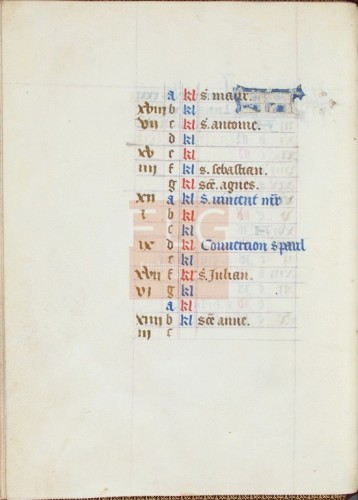 a kl s. maur.
xviii b kl
vii c kl s. antoine.
d kl
xv e kl
iiii f kl s. sebastian.
g kl sce. agnes.
xii a kl S. vincent
i b kl
c kl
ix d kl Conuercion s paul
e kl
xvii f kl s. Julian.
vi g kl
a kl
xiiii b kl sce anne.
iii c